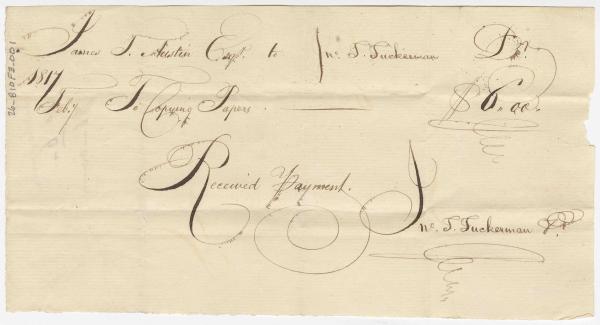 James T. Austin Esqr. to Jno. T. Tuckerman Dr.
1817
Feby To Copying Papers. $6.00.
Received Payment.
Jno. T. Tuckerman Jr.